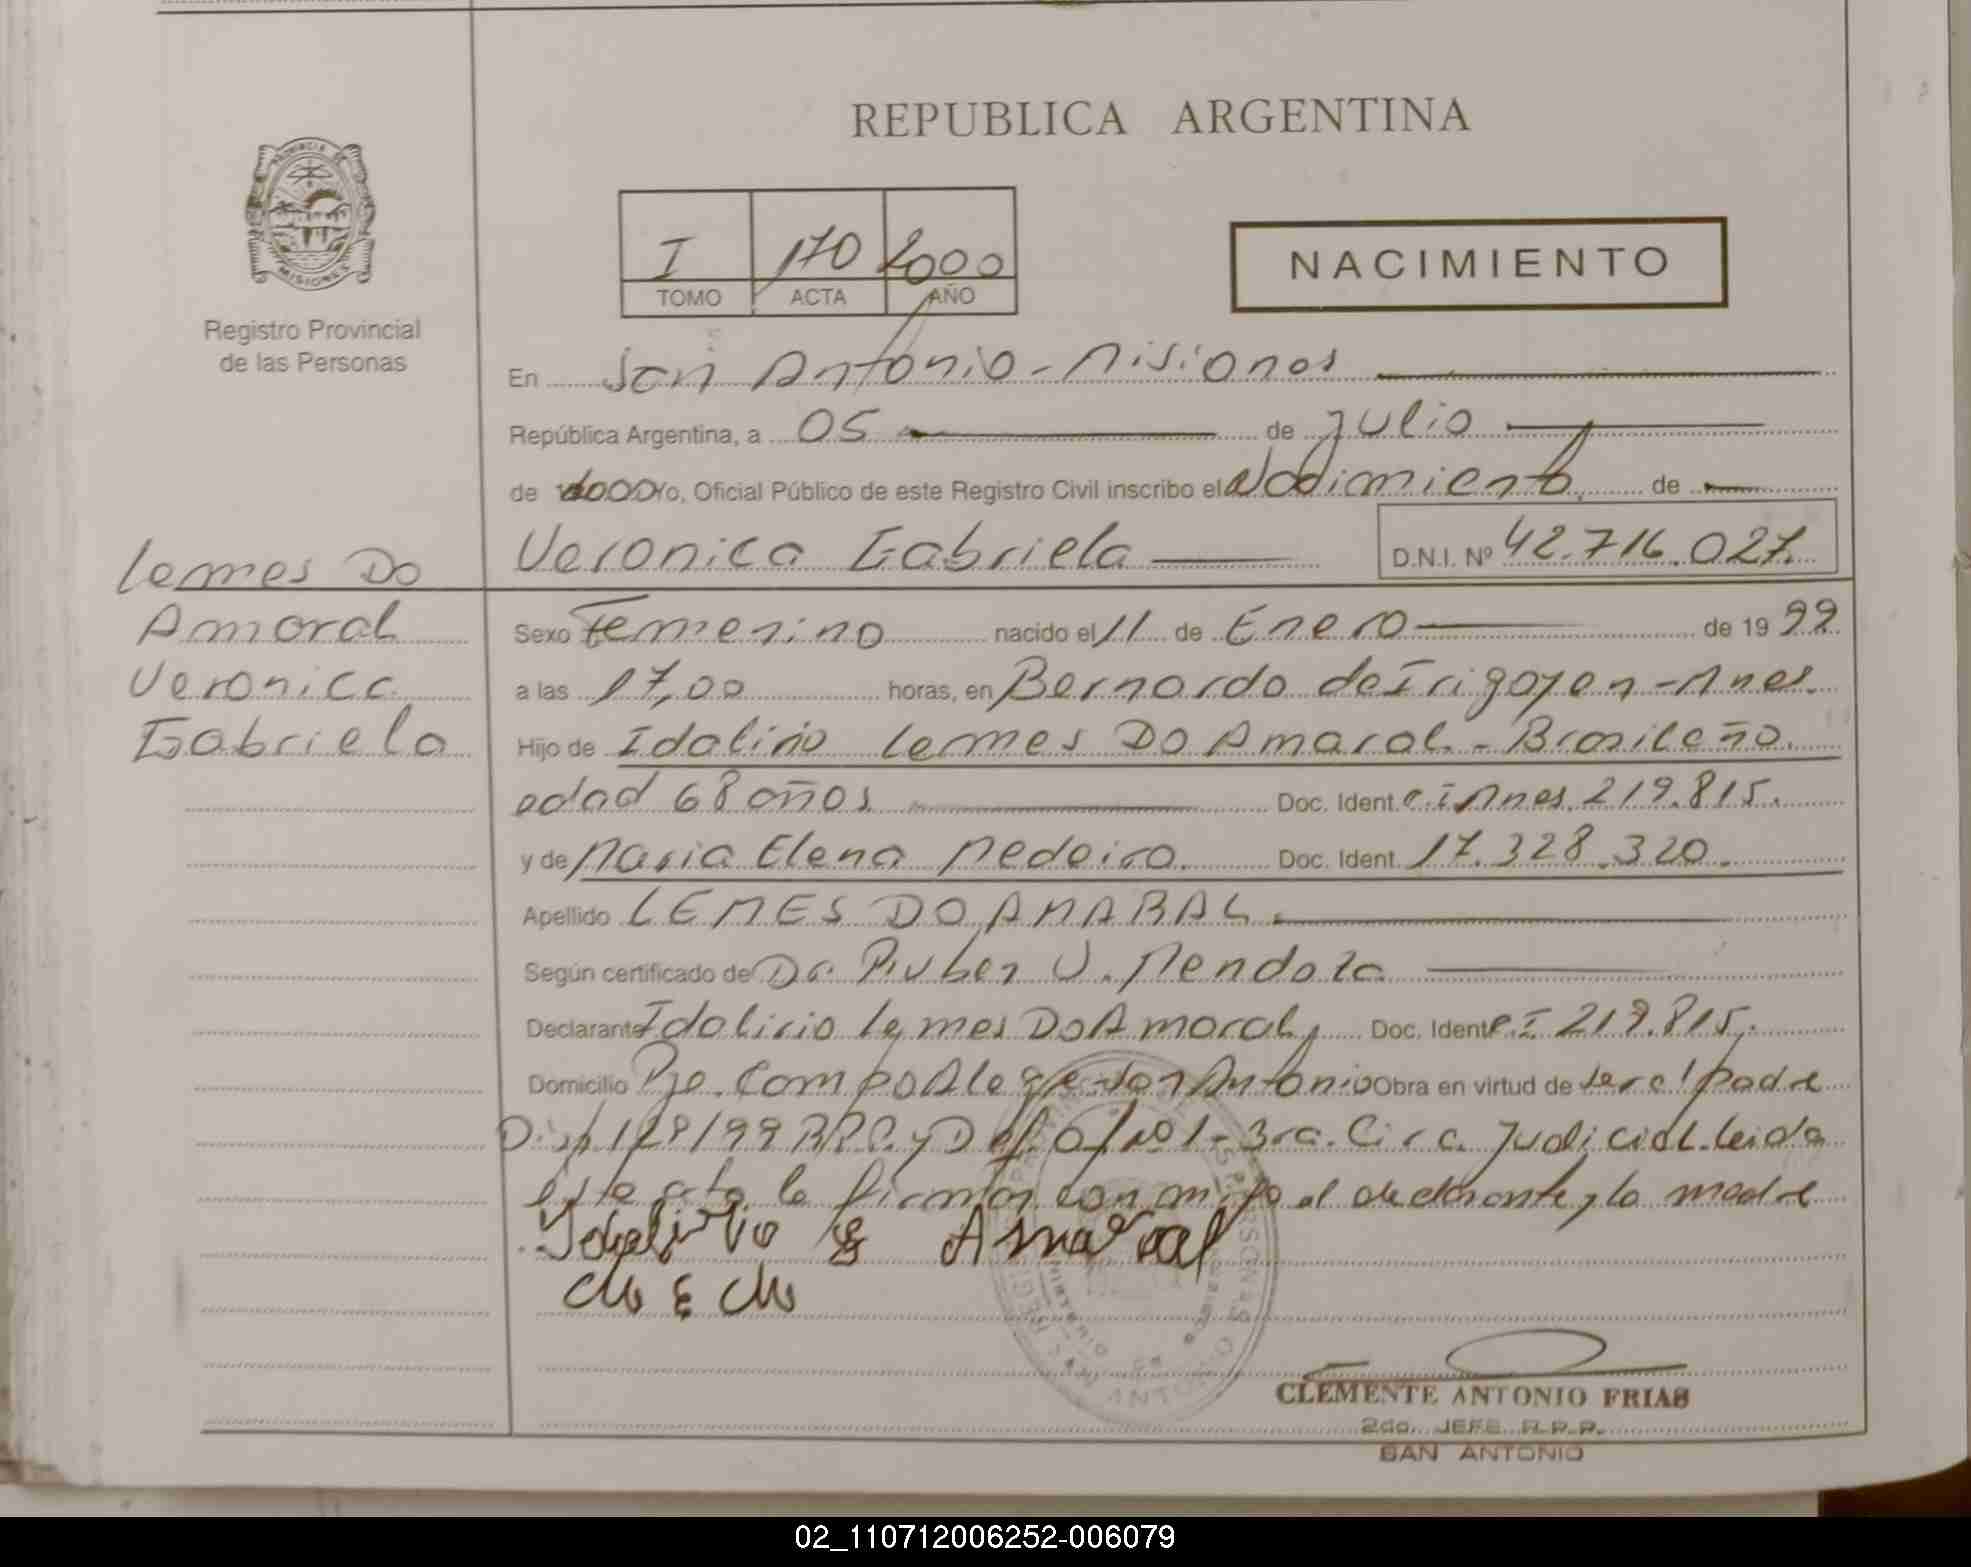 REPUBLICA ARGENTINA
PROVINCIA DE
MISIONES
Registro Provincial
de las Personas
I 170 2000
TOMO ACTA AÑO
NACIMIENTO
En San Antonio - Misiones
República Argentina, a 05 de Julio
de 2000 Yo, Oficial Público de este Registro Civil inscribo el Nacimiento de
Veronica Gabriela D.N.I. Nº 42.716.027.
Lemes Do
Amaral
Veronica
Gabriela
Sexo Femenino nacido el 11 de Enero de 1999
a las 17,00 horas, en Bernardo de Irigoyen - Mnes.
Hijo de Idalirio Lemes Do Amaral - Brasileño.
edad 68 años Doc. Ident. C.I. Mnes. 219.815.
y de Maria Elena Medeiro. Doc. Ident. 17.328.320.
Apellido LEMES DO AMARAL
Según certificado de Dr. Ruben V. Mendoza
Declarante Idalirio Lemes Do Amaral, Doc. Ident. C.I 219.815.
Domicilio Pje. Campo Alegre - San Antonio Obra en virtud de ser el padre
Disp 128/99 RPP. y Def. Of. Nº 1 - 3ra. Circ. Judicial. Leida
este acta la firman con migo el declarante y la madre
Idalirio Amaral
CLEMENTE ANTONIO FRIAS
2do. JEFE R.P.P.
SAN ANTONIO
02_110712006252-006079